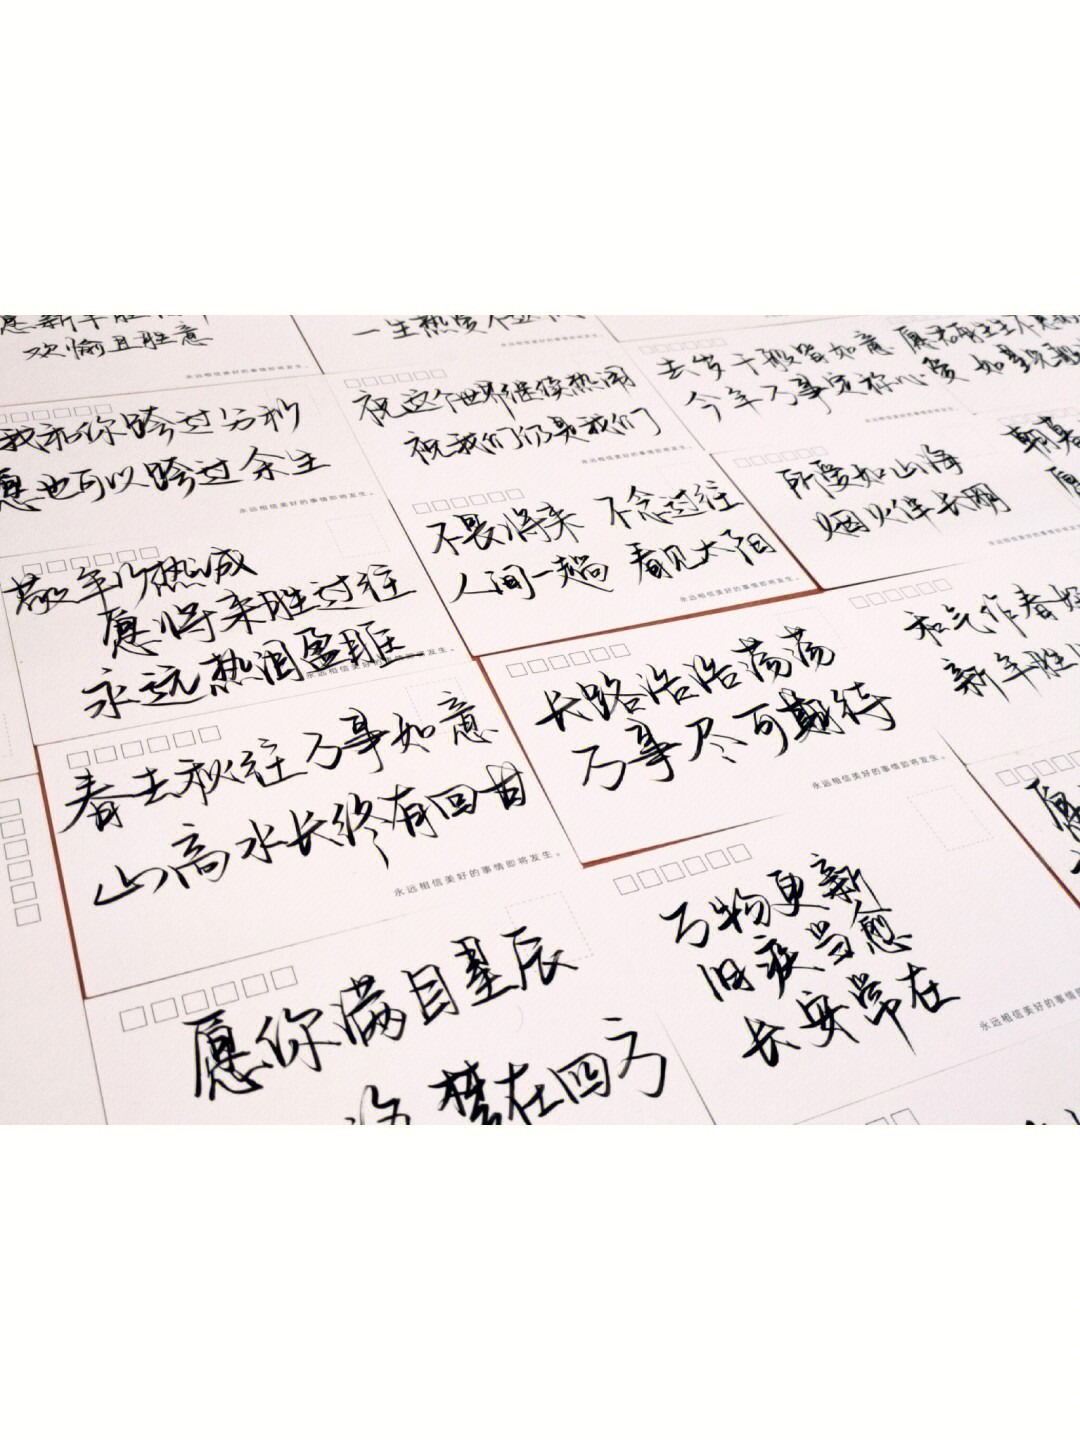 欢愉且胜意
永远相信美好的事情即将发生。
一生热爱
永远相信美好的事情即将发生。
去岁千般皆如意
今年万事定称心
永远相信美好的事情即将发生。
我和你跨过分秒
愿也可以跨过余生
永远相信美好的事情即将发生。
祝这个世界继续热闹
祝我们仍是我们
永远相信美好的事情即将发生。
所爱如山海
烟火伴长明
不畏将来 不念过往
人间一趟 看见太阳
永远相信美好的事情即将发生。
敬年少热诚
愿将来胜过往
永远热泪盈眶
永远相信美好的事情即将发生。
和气作春妍
新年胜
长路浩浩荡荡
万事尽可期待
永远相信美好的事情即将发生。
春去秋往万事如意
山高水长终有回甘
永远相信美好的事情即将发生。
万物更新
旧疾当愈
长安常在
永远相信美好的事情即将发生。
愿你满目星辰
梦在四方